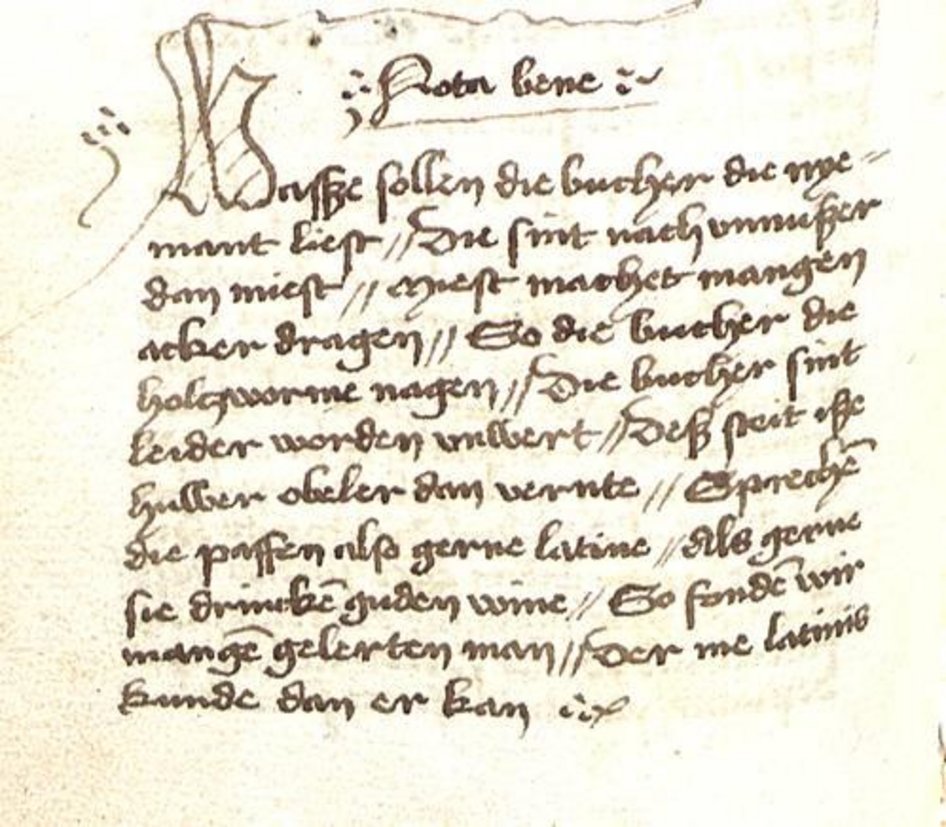 Nota bene
Waſſze ſollen die bucher die nye-
mant lieſt // Die ſint nach vnnutzer
dan mieſt // Mieſt machet mangen
acker dragen // So die bucher die
holczworme nagen // Die bucher ſint
leider worden vnwert // Deſz ſteit iſze
huwer obeler dan vernte // Sprechē
die paffen alſo gerne latine // Als gerne
sie drinckē guden wine // So fondē wir
mangē gelerten man // Der me latinis
kunde dan er kan